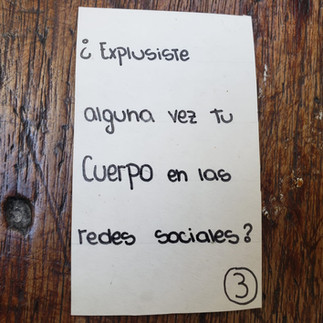 ¿ Explusiste
alguna vez tu
Cuerpo en las
redes sociales?
3